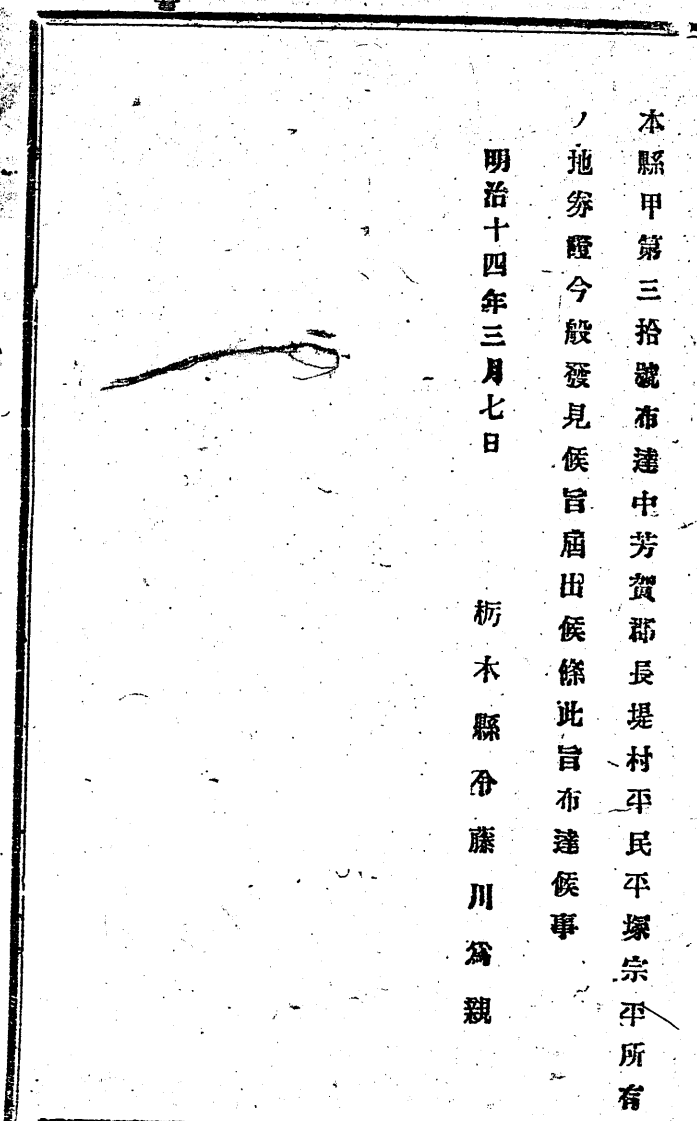 本縣甲第三拾號布達中芳賀郡長堤村平民平塚宗平所有
ノ地券證今般發見候旨屆出候條此旨布達候事
明治十四年三月七日
栃木縣令藤川爲親